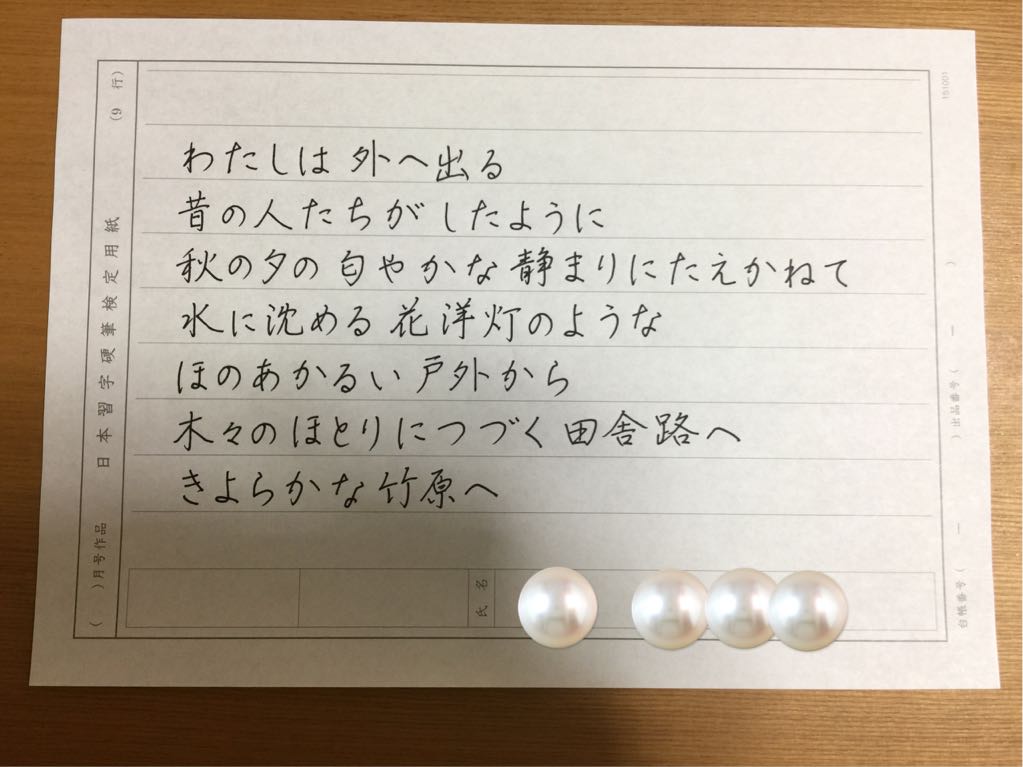 わたしは 外へ出る
昔の人たちが したように
秋の夕の 匂やかな 静まりにたえかねて
水に沈める 花洋灯のような
ほのあかるい 戸外から
木々のほとりにつづく 田舎路へ
きよらかな 竹原へ
氏名
( )月号作品 日本習字硬筆検定用紙 (9行)
台帳番号( ー )(出品番号( ー )
151001